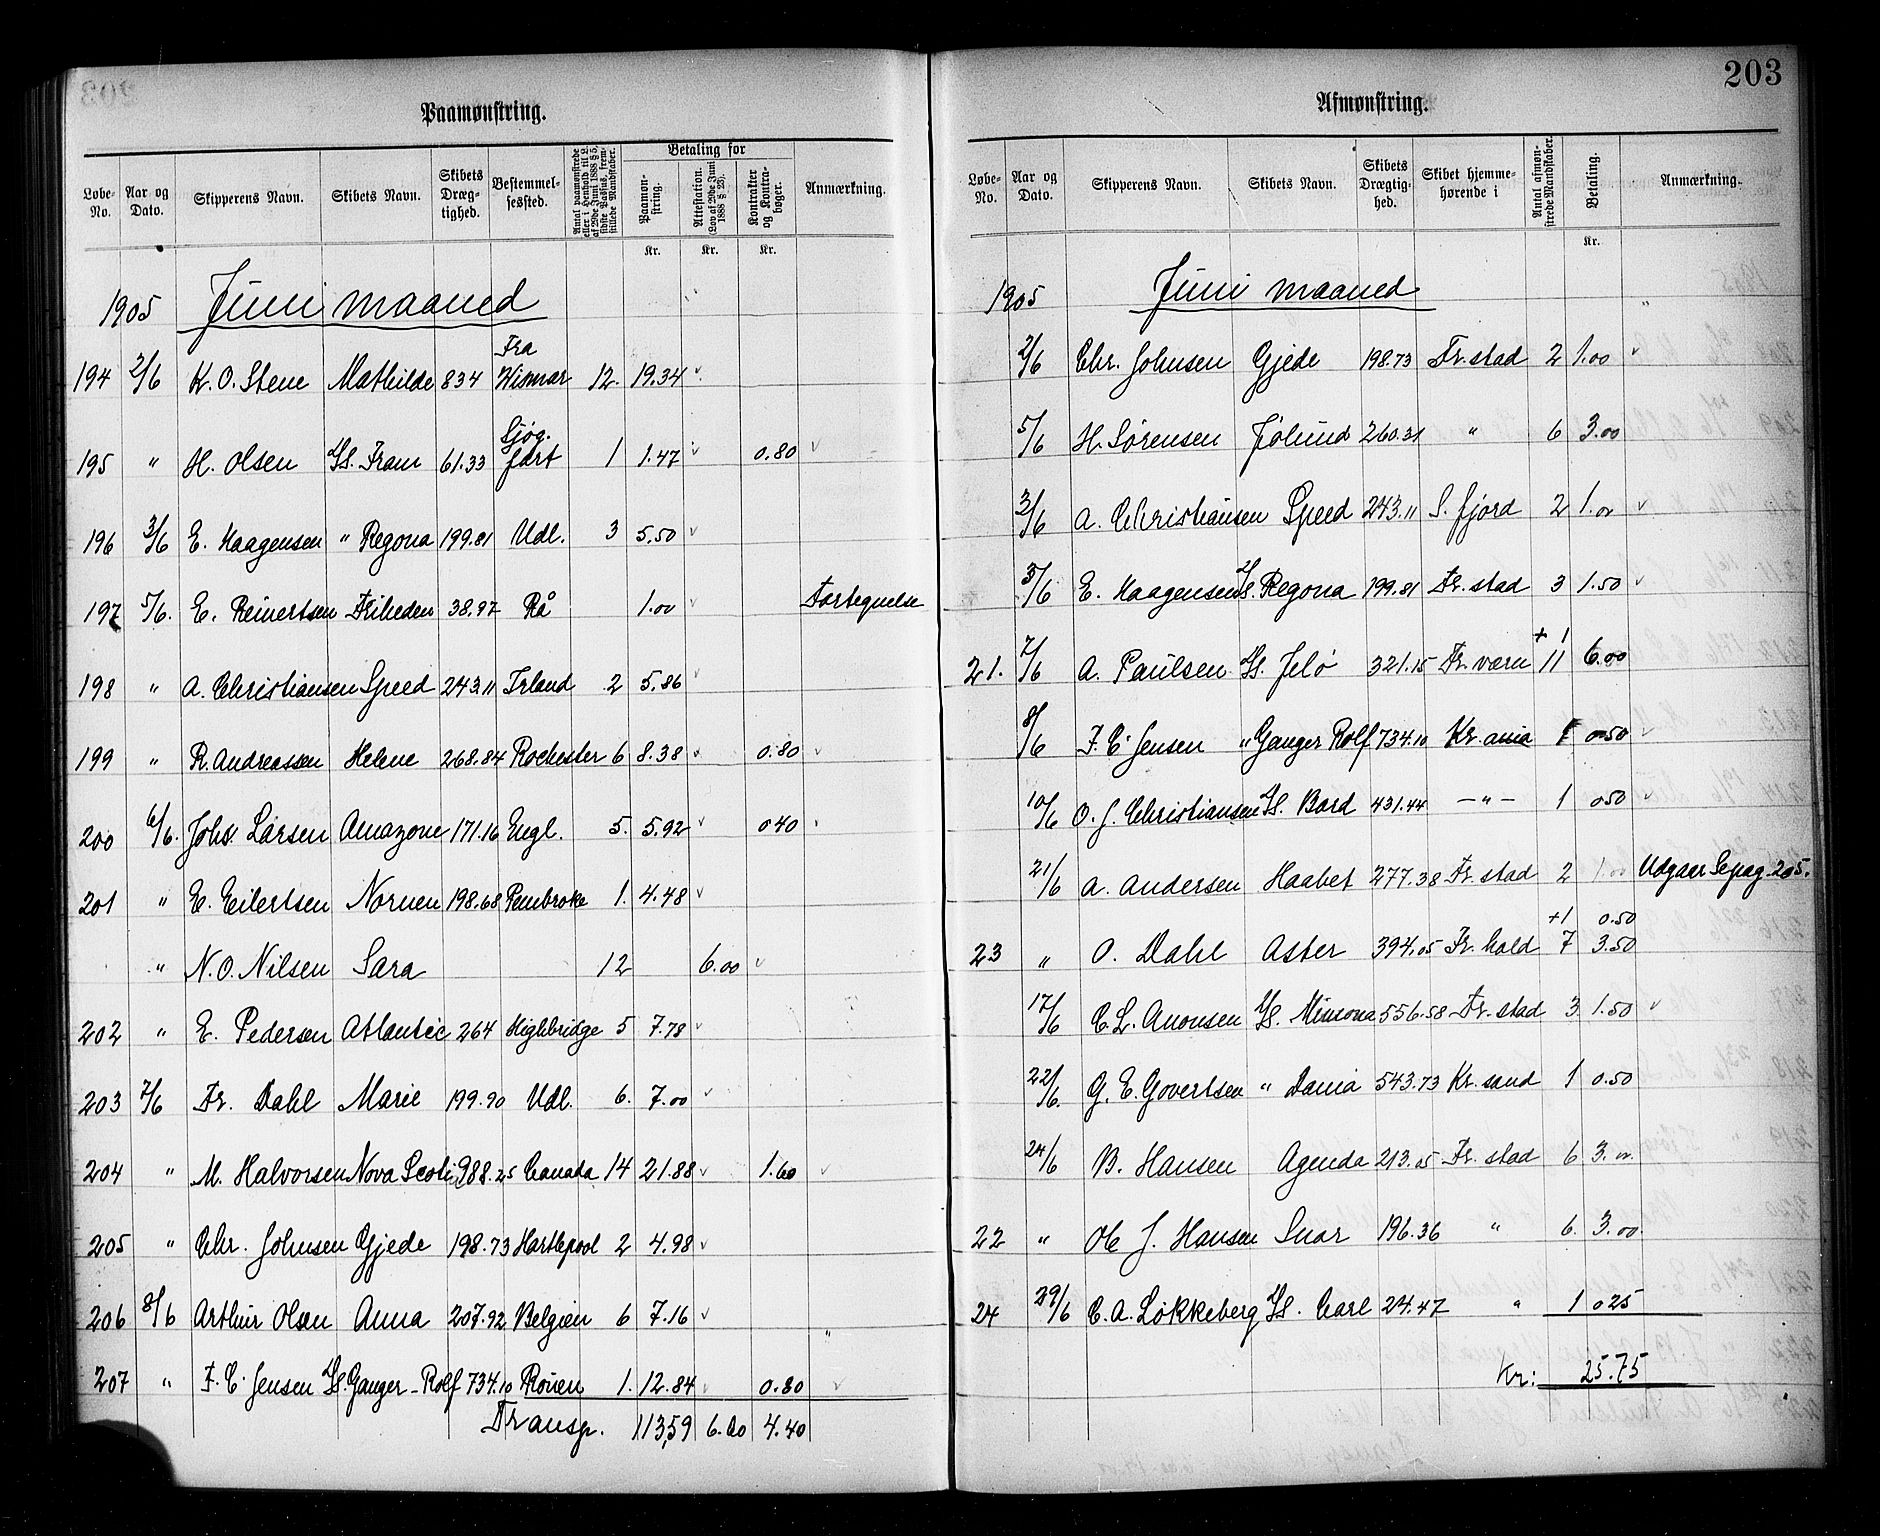 203
Paamønstring.
Løbe-No. Aar og Dato. Skipperens Navn. Skibets Navn. Skibets Dræg-tighed. Bestemmel-sessted. Antal paamønstrede eller i Henhold til L. af 29de Juni 1888 § 5, sidste Passus, frem-stillede Mandskaber. Betaling for Paamøn-string. Attestation. (Lov af 29de Juni 1888 § 23). Kontrakter og Kontra-bøger. Anmærkning.
Kr. Kr. Kr.
1905 Juni maaned
194 2/6 K. O. Stene Mathilde 834 Fra Wismar 12. 19.34
195 " H. Olsen Ds. Fram 61.33 Sjøg. fart 1 1.47 0.80
196 3/6 E. Haagensen " Regona 199.81 Udl. 3 5.50
197 5/6. E. Reinertsen Friheden 38.97 Rå 1.00 Fortegnelse
198 " A. Christiansen Speed 243.11 Irland 2 5.86
199 " R. Andreassen Helene 268.84 Rochester 6 8.38 0.80
200 6/6. Johs. Larsen Amazone 171.16 Engl. 5. 5.92 0 40
201 " E. Eilertsen Nornen 198.68 Pembroke 1. 4.48
" N. O. Nilsen Sara 12 6.00
202 " E. Pedersen Atlantic 264 Highbridge 5 7.78
203 7/6 Fr. Dahl Marie 199.90 Udl. 6. 7.00
204 " M. Halvorsen Nova Scoti 988.25 Canada 14 21.88 1.60
205 " Chr. Johnsen Gjede 198.73 Hartlepool 2 4.98
206 8/6 Arthur Olsen Anna 207.92 Belgien 6 7.16
207 " F. C. Jensen Ds. Ganger-Rolf 734.10 Rouen 1. 12.84 0.80
Transp. 113,59 6.00 4.40
Afmønstring.
Løbe-No. Aar og Dato. Skipperens Navn. Skibets Navn. Skibets Drægtig-hed. Skibet hjemme-hørende i Antal afmøn-strede Mandskaber. Betaling. Anmærkning.
Kr.
1905 Juni maaned
2/6 Chr. Johnsen Gjede 198.73 Fr.stad 2 1.00
5/6 H. Sørensen Jølund 260.31 " 6 3.00
3/6 A. Christiansen Speed 243.11 S. fjord 2 1.00
5/6 E. Haagensen Ds. Regona 199.81 Fr. stad 3 1.50
+ 1
21. 7/6 A. Paulsen Ds. Jelø 321.15 Fr. værn 11 6.00
8/6 F. C. Jensen " Ganger Rolf 734.10 Kr. ania 1 0.50
10/6 O. J. Christiansen Ds. Bard 431.44 — " — 1 0 50
21/6 A. Andersen Haabet 277.38 Fr. stad 2 1.00 Udgaar Se pag. 205.
+1 0.50
23 " O. Dahl Aster 394.05 Fr. hald 7 3.50
17/6 C. L. Amonsen Ds. Minsona 556.58 Fr. stad 3 1.50
22/6. G. E. Govertsen " Dania 543.73 Kr. sand 1 0.50
24/6 B. Hansen Agenda 213.05 Fr. stad 6 3.00
22 " Ole J. Hansen Snar 196.36 " 6. 3.00.
24 29/6 C. A. Løkkeberg Ds. Carl 24.47 " 1 0 25
Kr: 25.75